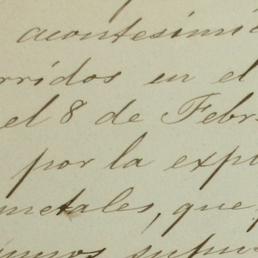 acontesimie
rridos en el
el 8 de Febr
por la expl
metales, que